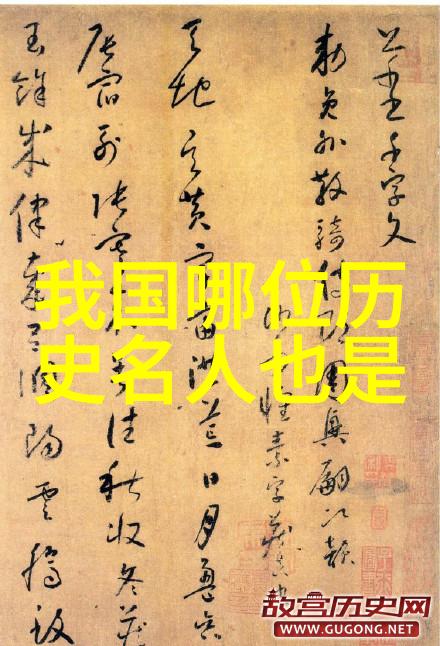 我国哪位历
史名人也是
千字文
勅員外散騎侍郎周興嗣次韻
沙門懷素字藏真
天地玄黃宇宙洪荒日月盈昃
辰宿列張寒來暑往秋收冬藏
閏餘成歲律呂調陽雲騰致
故宫历史网
WWW.GUGONG.NET